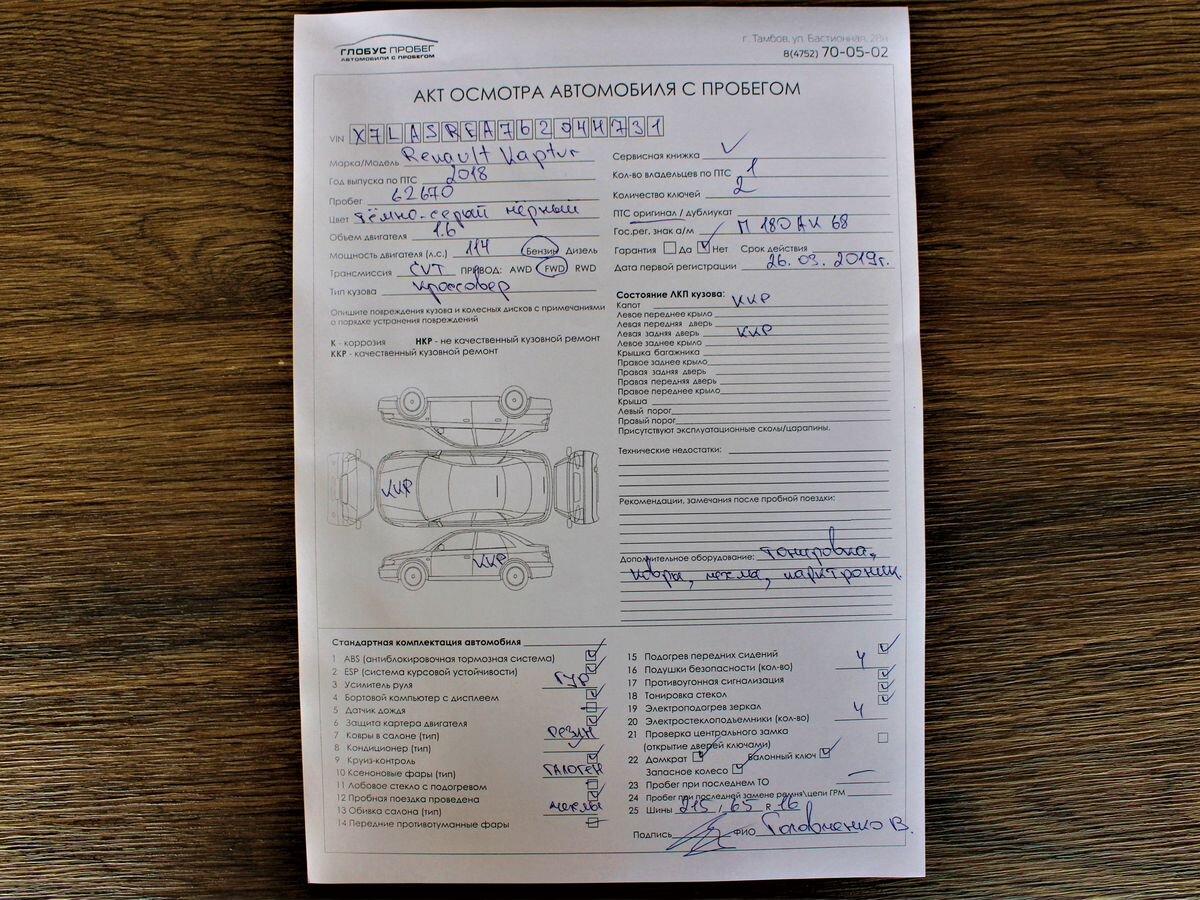 ГЛОБУС ПРОБЕГ
АВТОМОБИЛИ С ПРОБЕГОМ
г. Тамбов, ул. Бастионная, 28н
8(4752) 70-05-02
АКТ ОСМОТРА АВТОМОБИЛЯ С ПРОБЕГОМ
VIN X7LASREA762044731
Марка/Модель Renault Kaptur
Год выпуска по ПТС 2018
Пробег 62670
Цвет тёмно-серый чёрный
Объем двигателя 1.6
Мощность двигателя (л.с.) 114 Бензин Дизель
Трансмиссия CVT ПРИВОД: AWD FWD RWD
Тип кузова кроссовер
Опишите повреждения кузова и колесных дисков с примечаниями
о порядке устранения повреждений
К - коррозия НКР - не качественный кузовной ремонт
ККР - качественный кузовной ремонт
ККР
ККР
Сервисная книжка
Кол-во владельцев по ПТС 1
Количество ключей 2
ПТС оригинал / дубликат
Гос.рег. знак а/м П 180 АК 68
Гарантия Да Нет Срок действия
Дата первой регистрации 26.03.2019г.
Состояние ЛКП кузова:
Капот ККР
Левое переднее крыло
Левая передняя дверь
Левая задняя дверь ККР
Левое заднее крыло
Крышка багажника
Правое заднее крыло
Правая задняя дверь
Правая передняя дверь
Правое переднее крыло
Крыша
Левый порог
Правый порог
Присутствуют эксплуатационные сколы/царапины.
Технические недостатки:
Рекомендации, замечания после пробной поездки:
Дополнительное оборудование: тонировка,
ковры, чехлы, парктроник.
Стандартная комплектация автомобиля
1 ABS (антиблокировочная тормозная система)
2 ESP (система курсовой устойчивости)
3 Усилитель руля ГУР
4 Бортовой компьютер с дисплеем
5 Датчик дождя
6 Защита картера двигателя
7 Ковры в салоне (тип) РЕЗИН
8 Кондиционер (тип)
9 Круиз-контроль
10 Ксеноновые фары (тип) ГАЛОГЕН
11 Лобовое стекло с подогревом
12 Пробная поездка проведена
13 Обивка салона (тип) чехлы
14 Передние противотуманные фары
15 Подогрев передних сидений
16 Подушки безопасности (кол-во) 4
17 Противоугонная сигнализация
18 Тонировка стекол
19 Электроподогрев зеркал
20 Электростеклоподъемники (кол-во) 4
21 Проверка центрального замка
(открытие дверей ключами)
22 Домкрат Балонный ключ
Запасное колесо
23 Пробег при последнем ТО —
24 Пробег при последней замене ремня\цепи ГРМ
25 Шины 215 / 65 R 16
Подпись ФИО Головченко В.